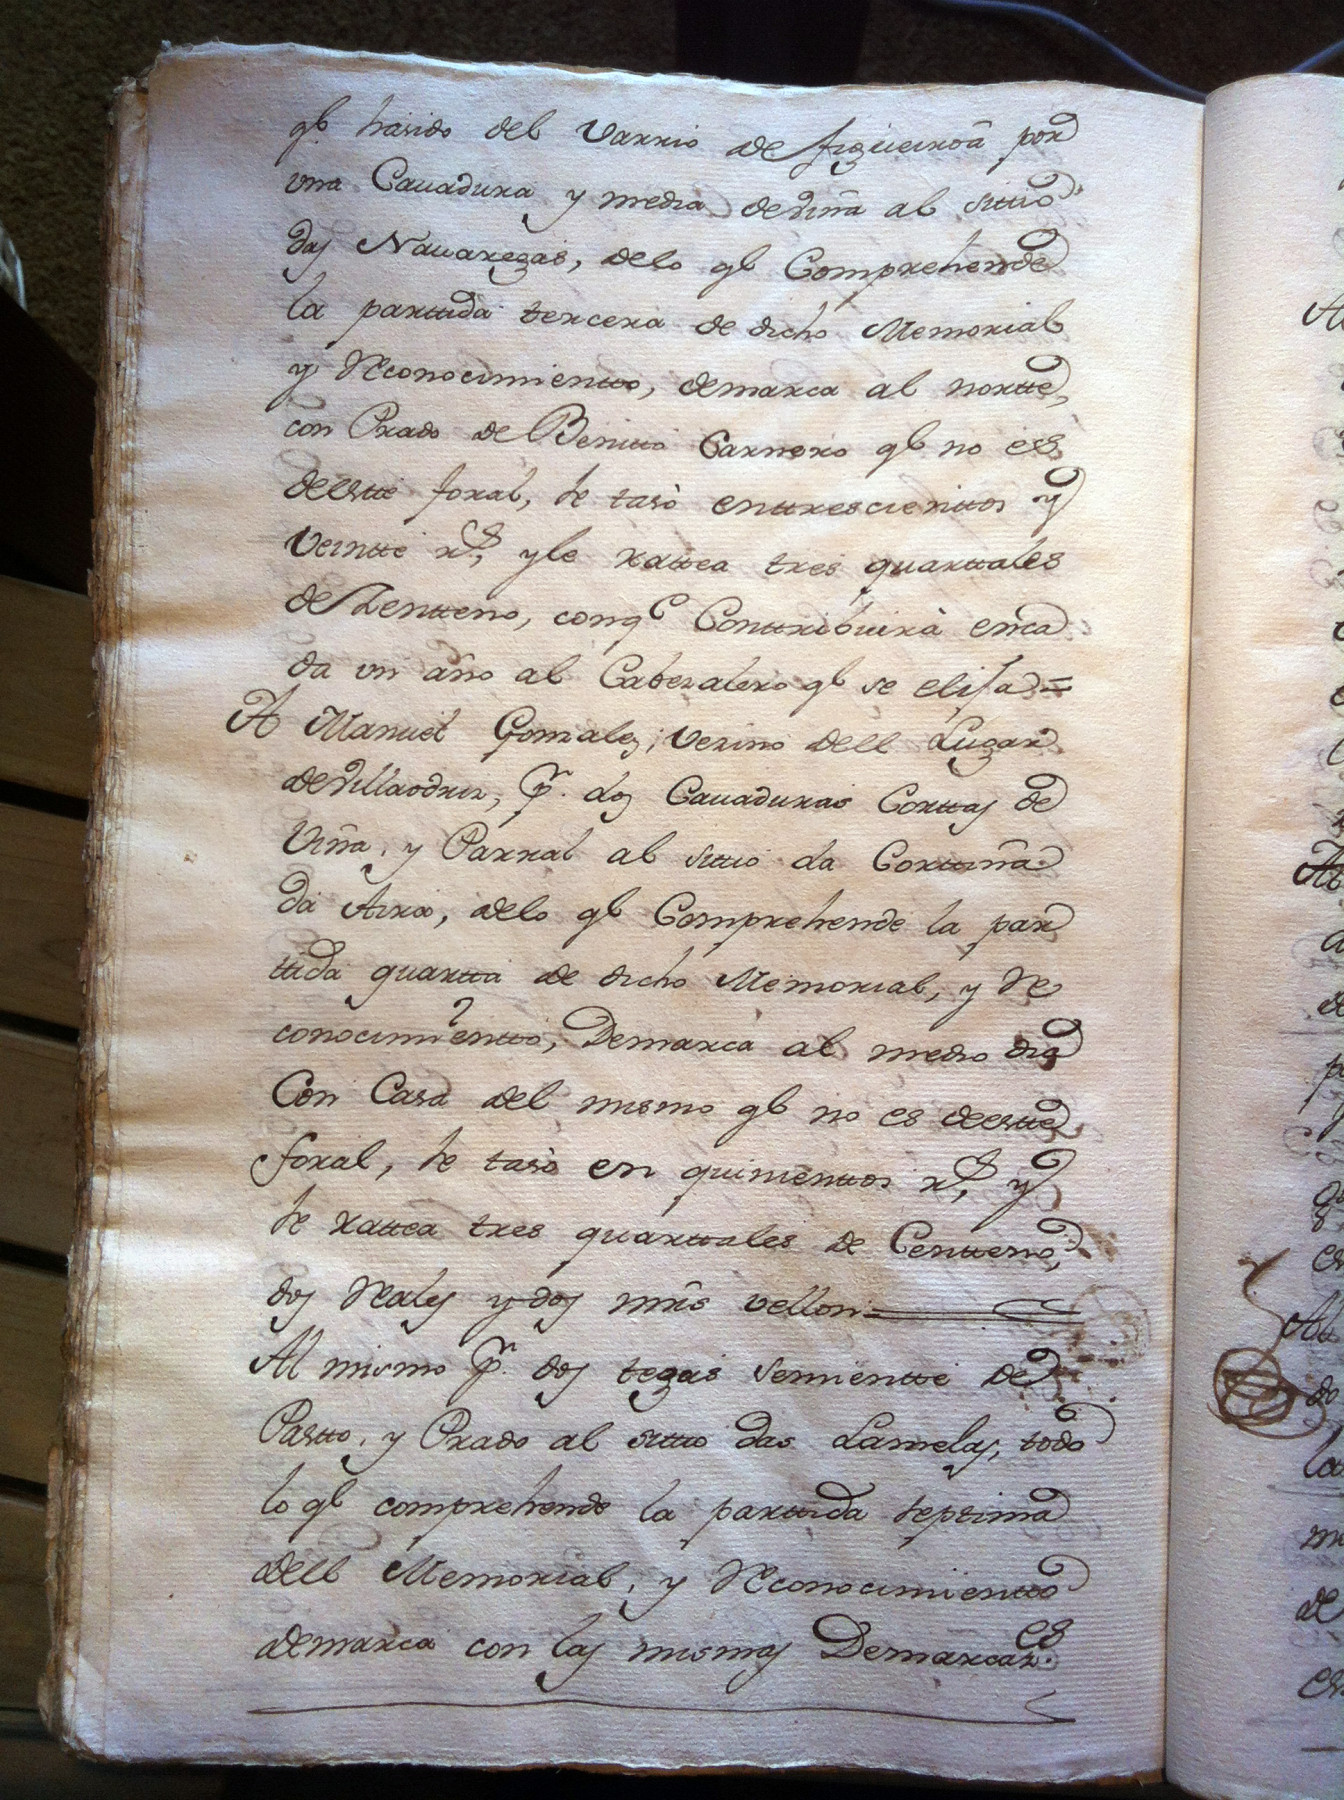 qᵉ hasido del Varrio de figueiroâ por
vna Cauadura y media deviña al sittio
das Nauaregas, delo qᵉ Comprehende
la parttida tercera de dicho Memorial
y Reconocimientto, demarca al nortte,
con Prado de Benitto Carnero qᵉ no es
deestte foral, se tasò enttrescienttos y
veintte rˢ, yle rattea tres quarttales
de Zentteno, conqᵉ Conttribuirà enca
da vn año al Cabezalero qᵉ se elija =
A Manuel Gonzalez, vezino dell Lugar
deVillaodriz, pʳ. dos Cauaduras Corttas de
Viña, y Parral al sittio da Corttiña
da Aira, delo qᵉ Comprehende la par
ttida quartta de dicho Memorial, y Re
conocimientto, Demarca al medio dia
Con Casa del mismo qᵉ no es deestte
foral, se tasò en quinienttos rˢ, y
se rattea tres quarttales de Centteno,
dos Reales y dos mr̃s vellon =
Al mismo pʳ. dos tegas semientte de
Pastto, y Prado al sittio das Lamelas, todo
lo qᵉ comprehende la parttida septima
dell Memorial, y Reconocimientto
demarca con las mismas Demarcanᵉˢ.